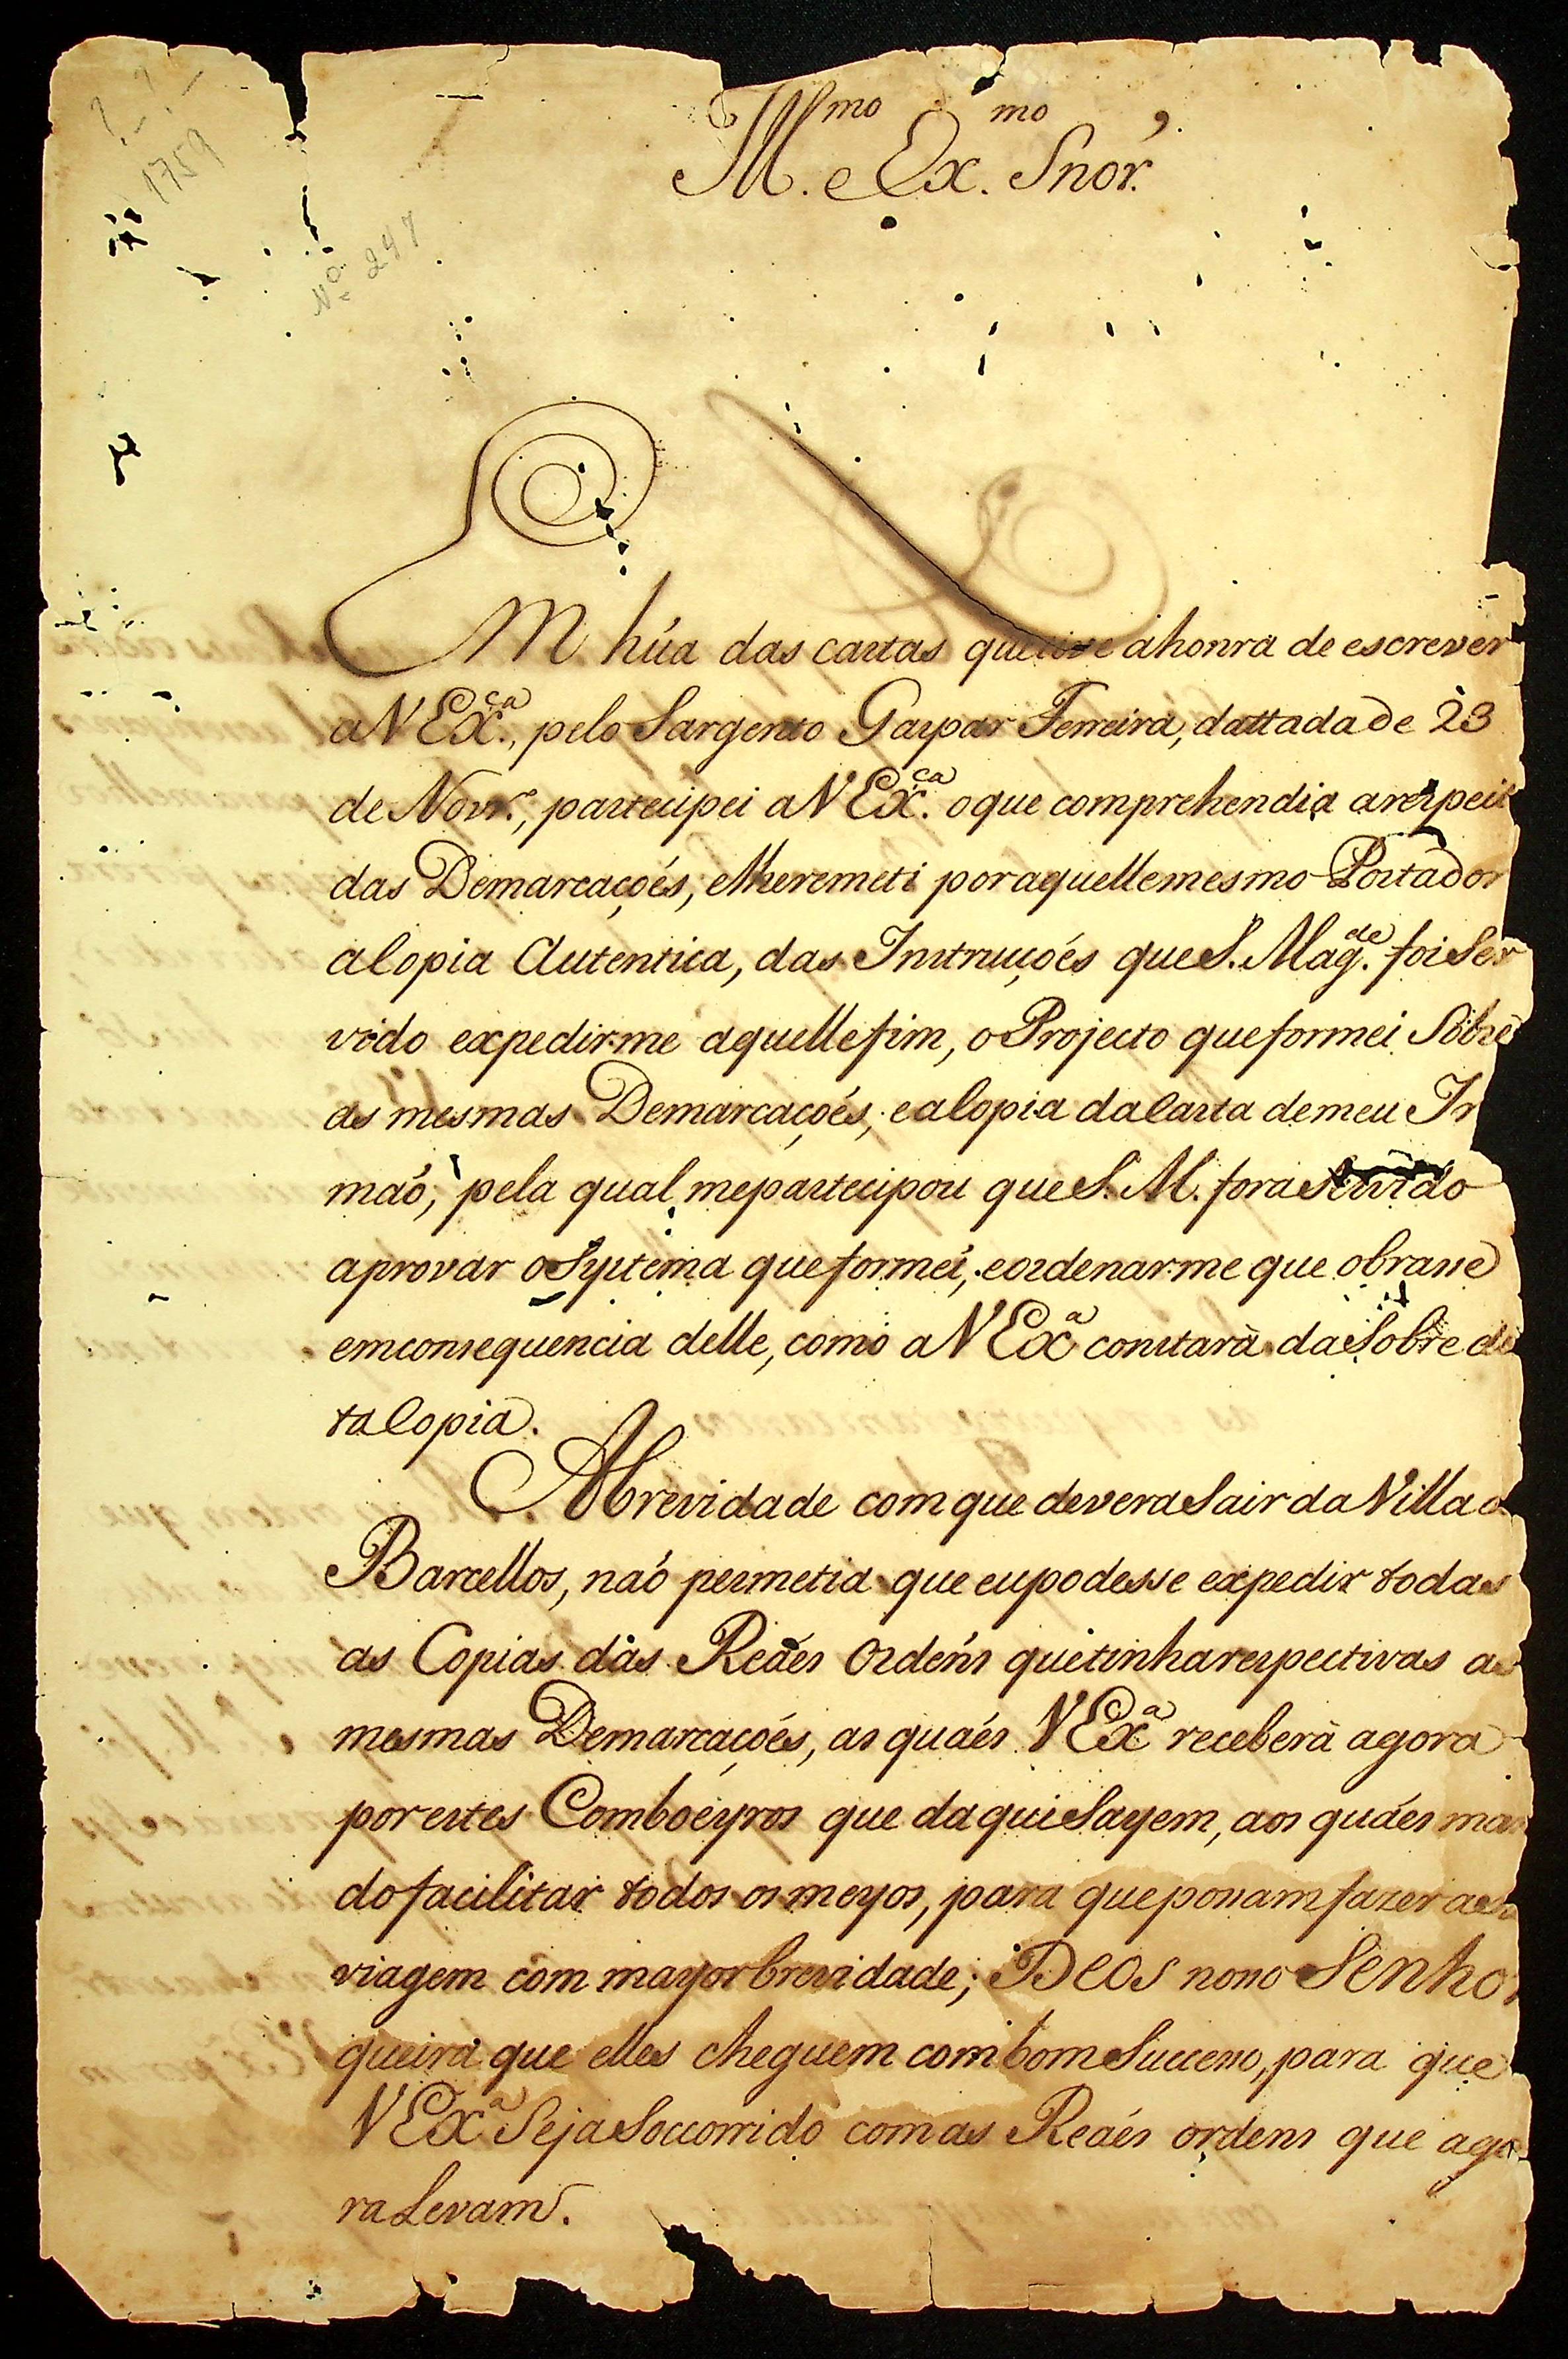 1759
Nº 297
Ill.mo e Ex.mo Snor.
Em hũa das cartas que tive a honra de escrever
a V Ex.ca, pelo Sargento Gaspar Ferreira, dattada de 23
de Novr.e, partecipei a V Ex.ca o que comprehendia a respeit
das Demarcaçoẽs, e lhe remeti por aquelle mesmo Portador
a Copia Autentica, das Instruçoẽs que S. Mag.de foi Ser
vido expedirme aquelle fim, o Projecto que formei Sobre
as mesmas Demarcaçoẽs, e a Copia da Carta de meu Ir
maõ, pela qual me partecipou que S. M. fora Servido
aprovar o Systema que formei, e ordenarme que obrasse
em consequencia delle, como a V Ex.a constarà da Sobre di
ta Copia.
A brevidade com que devera Sair da Villa d
Barcellos, naõ permetia que eu podesse expedir todas
as Copias das Reáes Ordeñs que tinha respectivas as
mesmas Demarcaçoẽs, as quáes V Ex.a receberà agora
por estes Comboeyros que daqui Sayem, aos quáes man
do facilitar todos os meyos, para que possam fazer a
viagem com mayor brevidade; Deos nosso Senhor
queira que elles cheguem com bom Sucesso, para que
V Ex.a Seja Soccorrido com as Reáes ordens que ago
ra Levam.